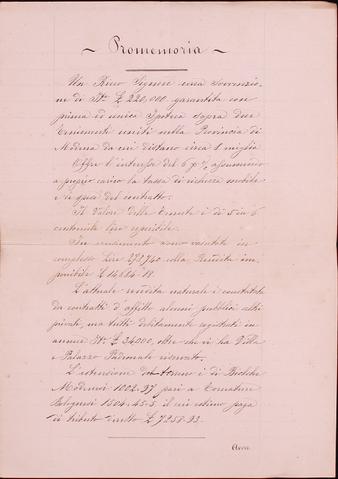 ~ Promemoria ~
Un Ricco Signore cerca Sovvenzio
ne di It.e £ 220,000 garantita con
prima ed unica Ipoteca sopra due
Tenimenti uniti nella Provincia di
Modena da cui distano circa 1 miglia
Offre l'interesse del 6 p % assumendo
a proprio carico la tassa di richezza mobile
e le spese del contratto.
Il Valore delle Tenute è di 5 in 6
centomila lire
In censimento sono valutate in
complesso Lire 271740 colla Rendita im
ponibile £ 14684.18
L'attuale rendita naturale è constatata
da contratti d'affitto alcuni pubblici altri
privati, ma tutti debitamente registrati in
annue It.e £ 34000, oltre che vi ha Villa
e Palazzo Padronale riservato.
L'estensione del terreno è di Biolche
Modenesi 1002.37 pari a Tornature
Bolognesi 1304.45.3, il cui estimo paga
di tributo diretto £ 7258.93.